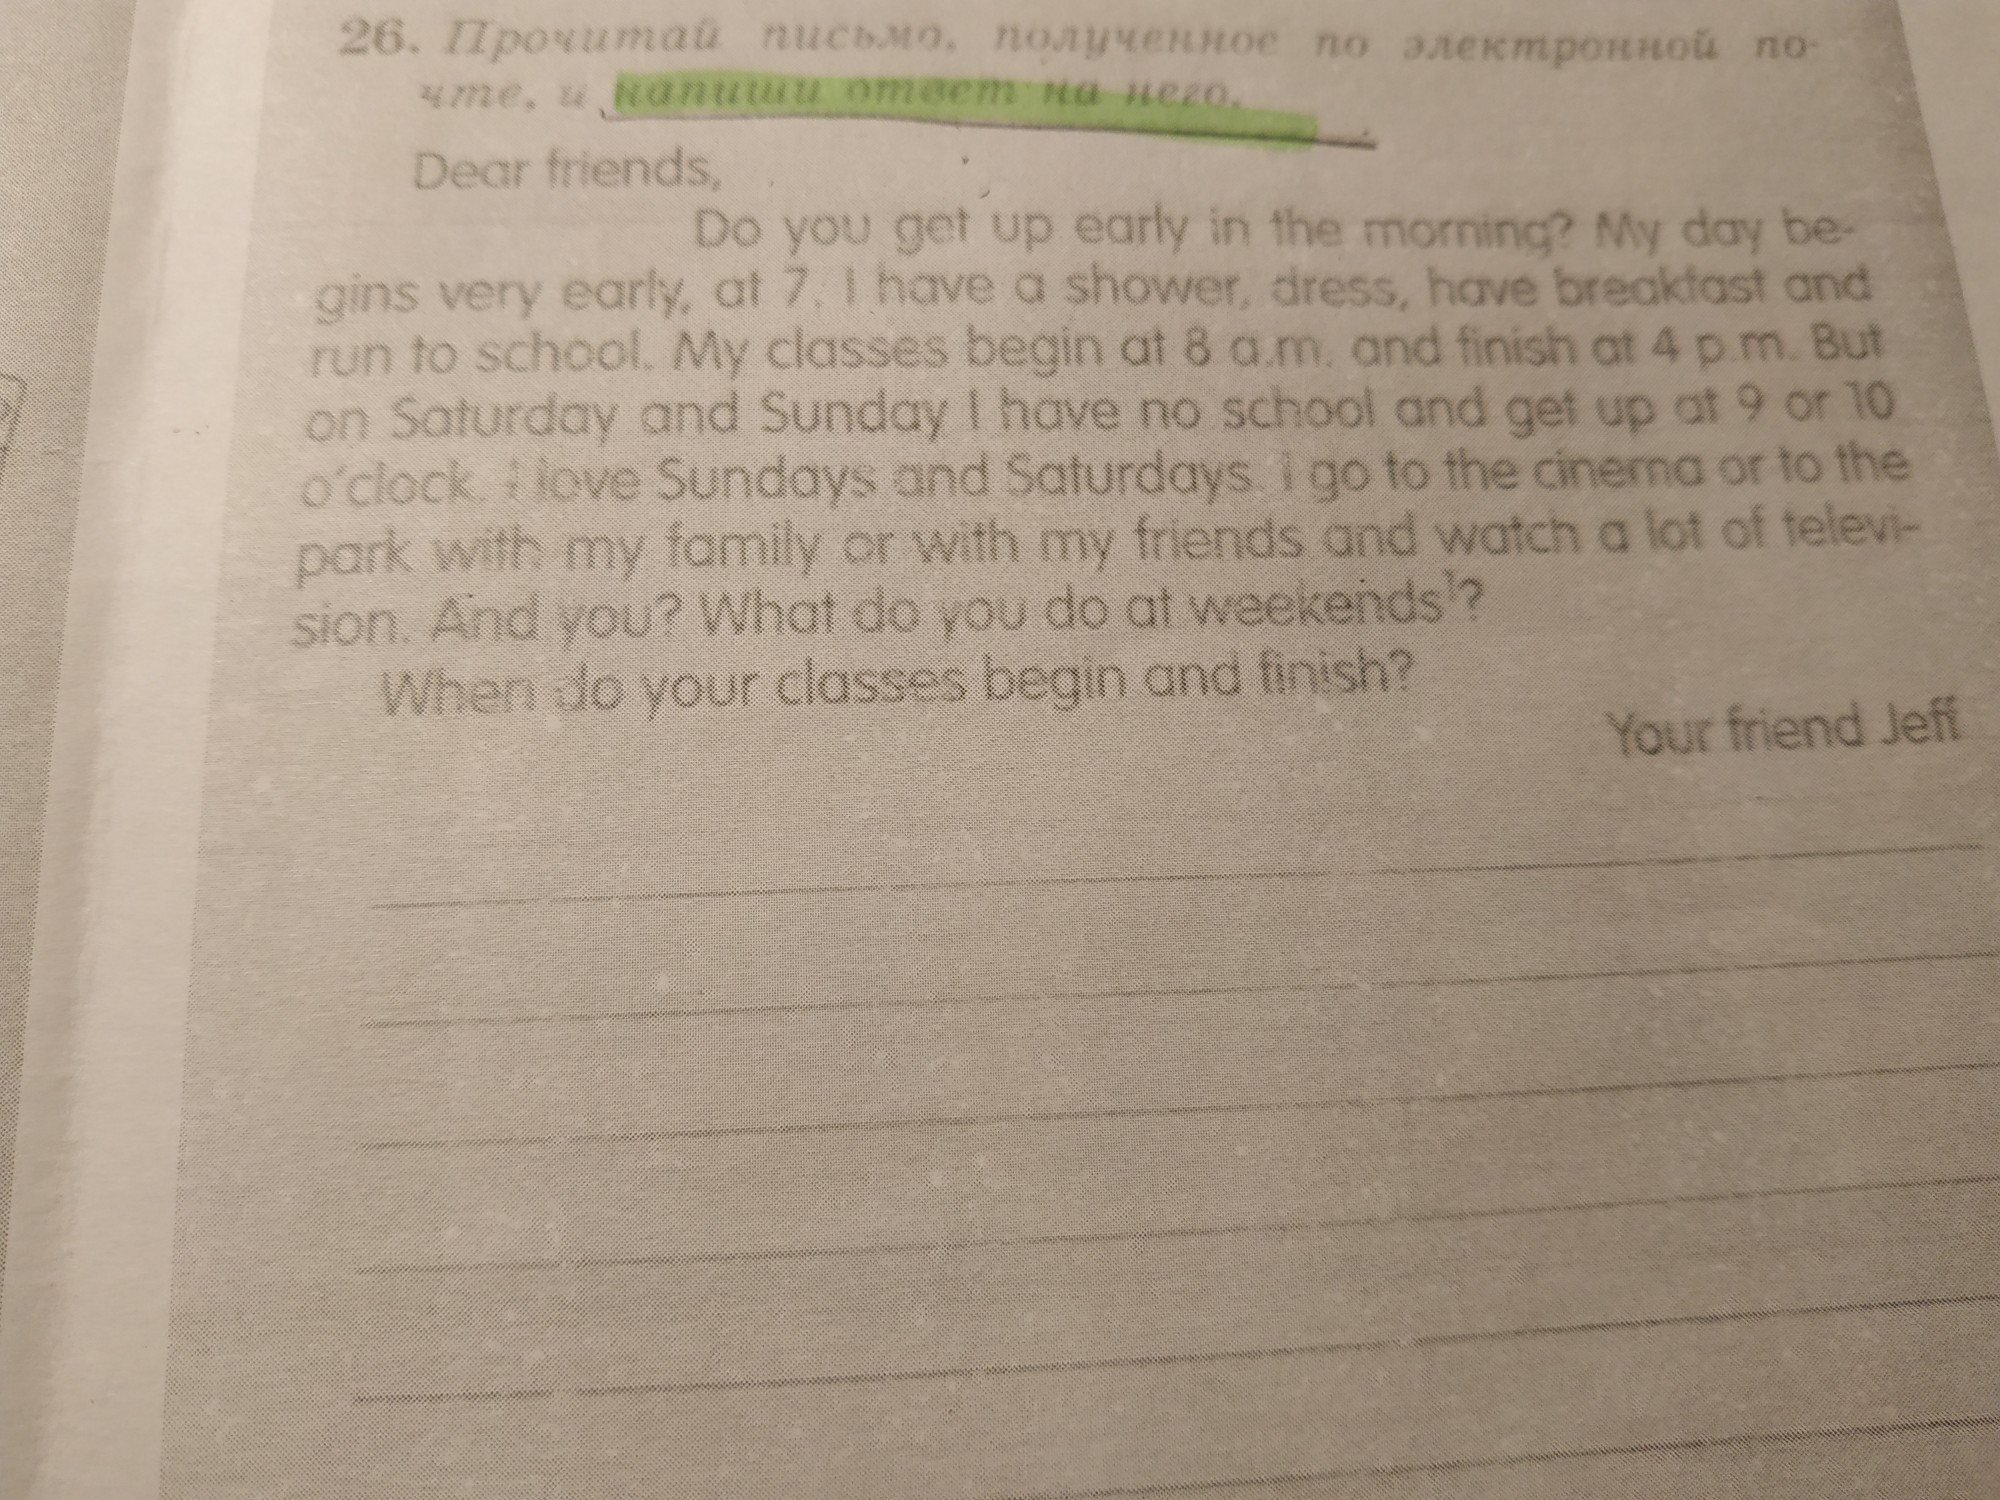 26. Прочитай письмо, полученное по электронной по-
чте, и напиши ответ на него.
Dear friends,
Do you get up early in the morning? My day be-
gins very early, at 7. I have a shower, dress, have breakfast and
run to school. My classes begin at 8 a.m. and finish at 4 p.m. But
on Saturday and Sunday I have no school and get up at 9 or 10
o'clock. I love Sundays and Saturdays. I go to the cinema or to the
park with my family or with my friends and watch a lot of televi-
sion. And you? What do you do at weekends¹?
When do your classes begin and finish?
Your friend Jeff